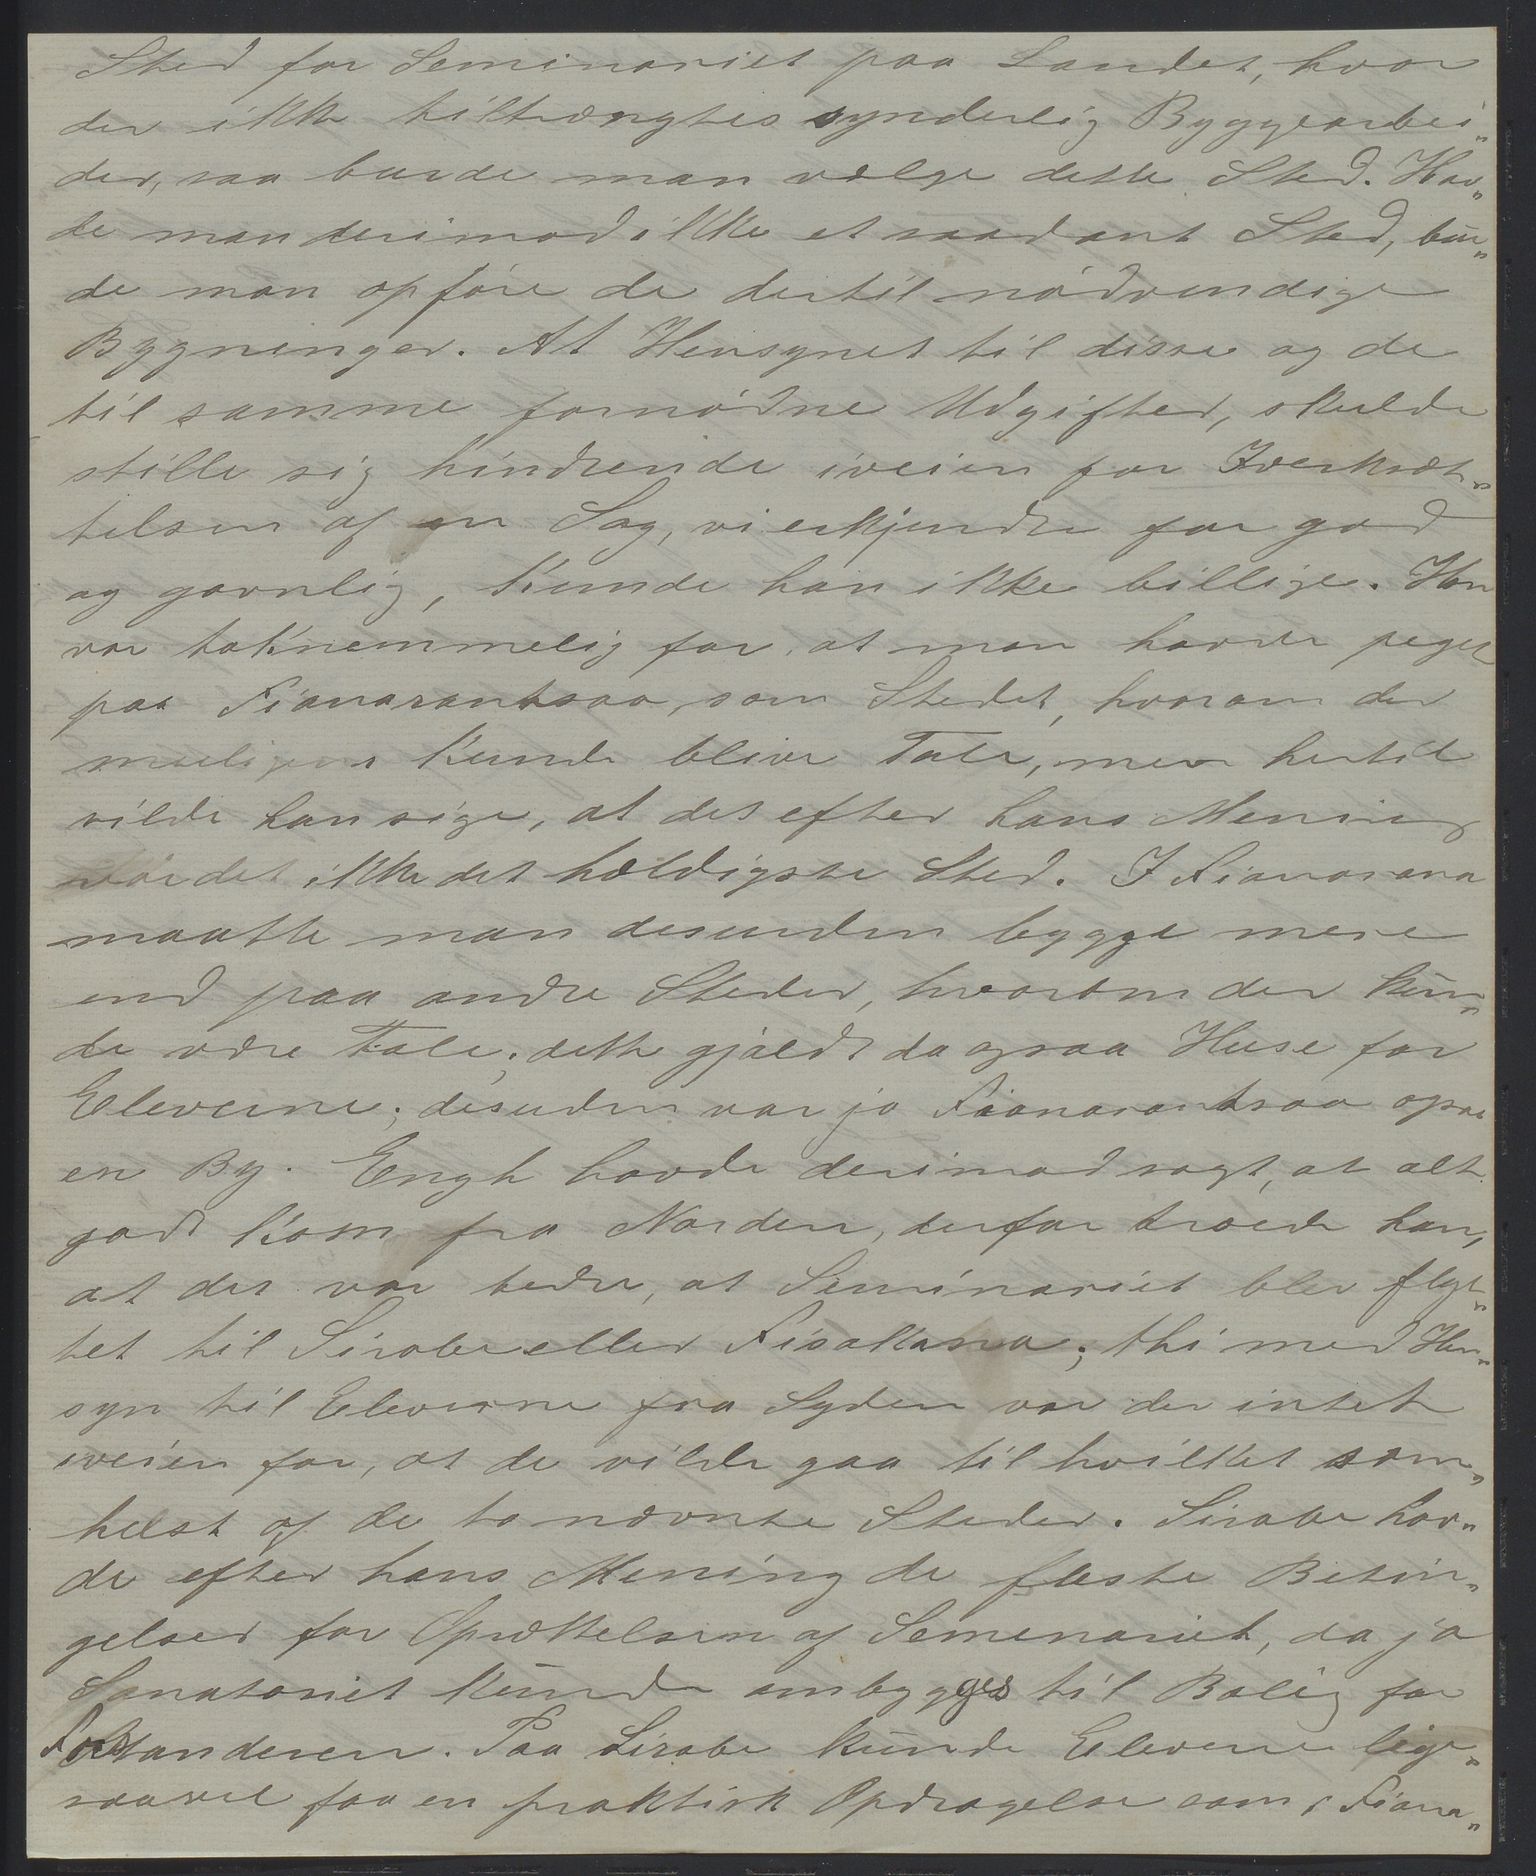 Sted for Seminariet paa Landet, hvor
der ikke tiltrængtes synderlig Byggearbei„
der, saa burde man vælge dette Sted. Hav„
de man derimod ikke et saadant Sted, bur„
de man opføre de dertil nødvendige
Bygninger. At Hensynet til disse og de
til samme fornødne Udgifter, skulde
stille sig hindrende iveien for Iverksæt„
telsen af en Sag, vi erkjendte for god
og gavnlig, kunde han ikke billige. Han
var taknemmelig for, at man havde peget
paa Fianarantsoa, som Stedet, hvorom der
muligens kunde blive Tale, men hertil
vilde han sige, at det efter hans Mening
var det ikke det heldigste Sted. I Fianarana
maatte man desuden bygge mere
end paa andre Steder, hvorom der kun„
de være Tale; dette gjaldt da ogsaa Huse for
Eleverne; desuden var jo Fianarantsoa ogsaa
en By. Engh havde derimod sagt, at alt
godt kom fra Norden, derfor troede han,
at det var bedre, at Seminariet blev flyt„
tet til Sirabe eller Fisakana; thi med Hen„
syn til Eleverne fra Syden var der intet
iveien for, at de vilde gaa til hvilket som„
helst af de to nævnte Steder. Sirabe hav„
de efter hans Mening de fleste Betin„
gelser for Oprettelsen af Semenariet, da jo
Sanatoriet kunde ombygges til Bolig for
Forstanderen. Paa Sirabe kunde Eleverne lige„
saavel faa en praktisk Opdragelse som i Fiana„